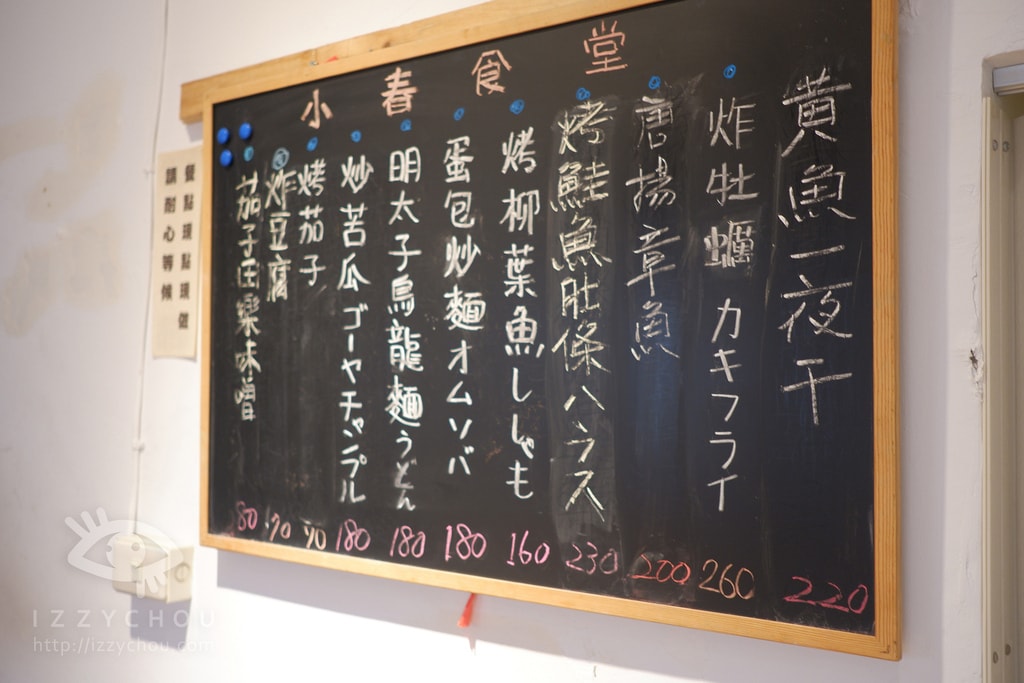 小春食堂
黃魚一夜干 220
炸牡蠣 カキフライ 260
唐揚章魚 200
烤鮭魚肚條ハラス 230
烤柳葉魚ししゃも 160
蛋包炒麵オムソバ 180
明太子烏龍麵うどん 180
炒苦瓜ゴーヤチャンプル 180
烤茄子 90
炸豆腐
茄子田樂味噌
餐點現點現做
請耐心等候
IZZYCHOU
http://izzychou.com